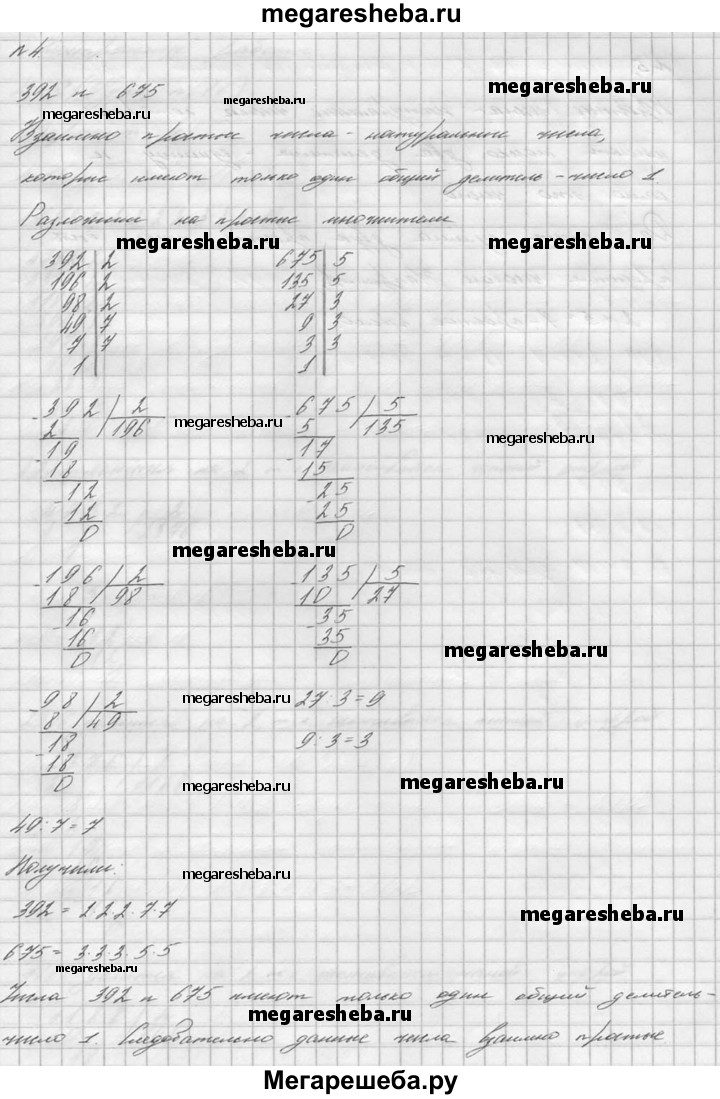 megaresheba.ru
№4
megaresheba.ru
392 и 675
megaresheba.ru
megaresheba.ru
Взаимно простые числа - натуральные числа,
которые имеют только один общий делитель - число 1
Разложим на простые множители
megaresheba.ru megaresheba.ru
392 | 2 675 | 5
196 | 2 135 | 5
98 | 2 27 | 3
49 | 7 9 | 3
7 | 7 3 | 3
1 | 1 |
-392 | 2 -675 | 5
2 | 196 megaresheba.ru 5 | 135
megaresheba.ru
-19 -17
18 15
-12 -25
12 25
0 0
megaresheba.ru
-196 | 2 -135 | 5
18 | 98 10 | 27
-16 -35
16 35
0 0
megaresheba.ru
-98 | 2 megaresheba.ru 27:3=9
8 | 49
-18 9:3=3
18
0 megaresheba.ru megaresheba.ru
49:7=7
Получили:
megaresheba.ru
392 = 2·2·2·7·7
megaresheba.ru
675 = 3·3·3·5·5
megaresheba.ru
Числа 392 и 675 имеют только один общий делитель-
megaresheba.ru
число 1. Следовательно данные числа взаимно простые
Мегарешеба.ру